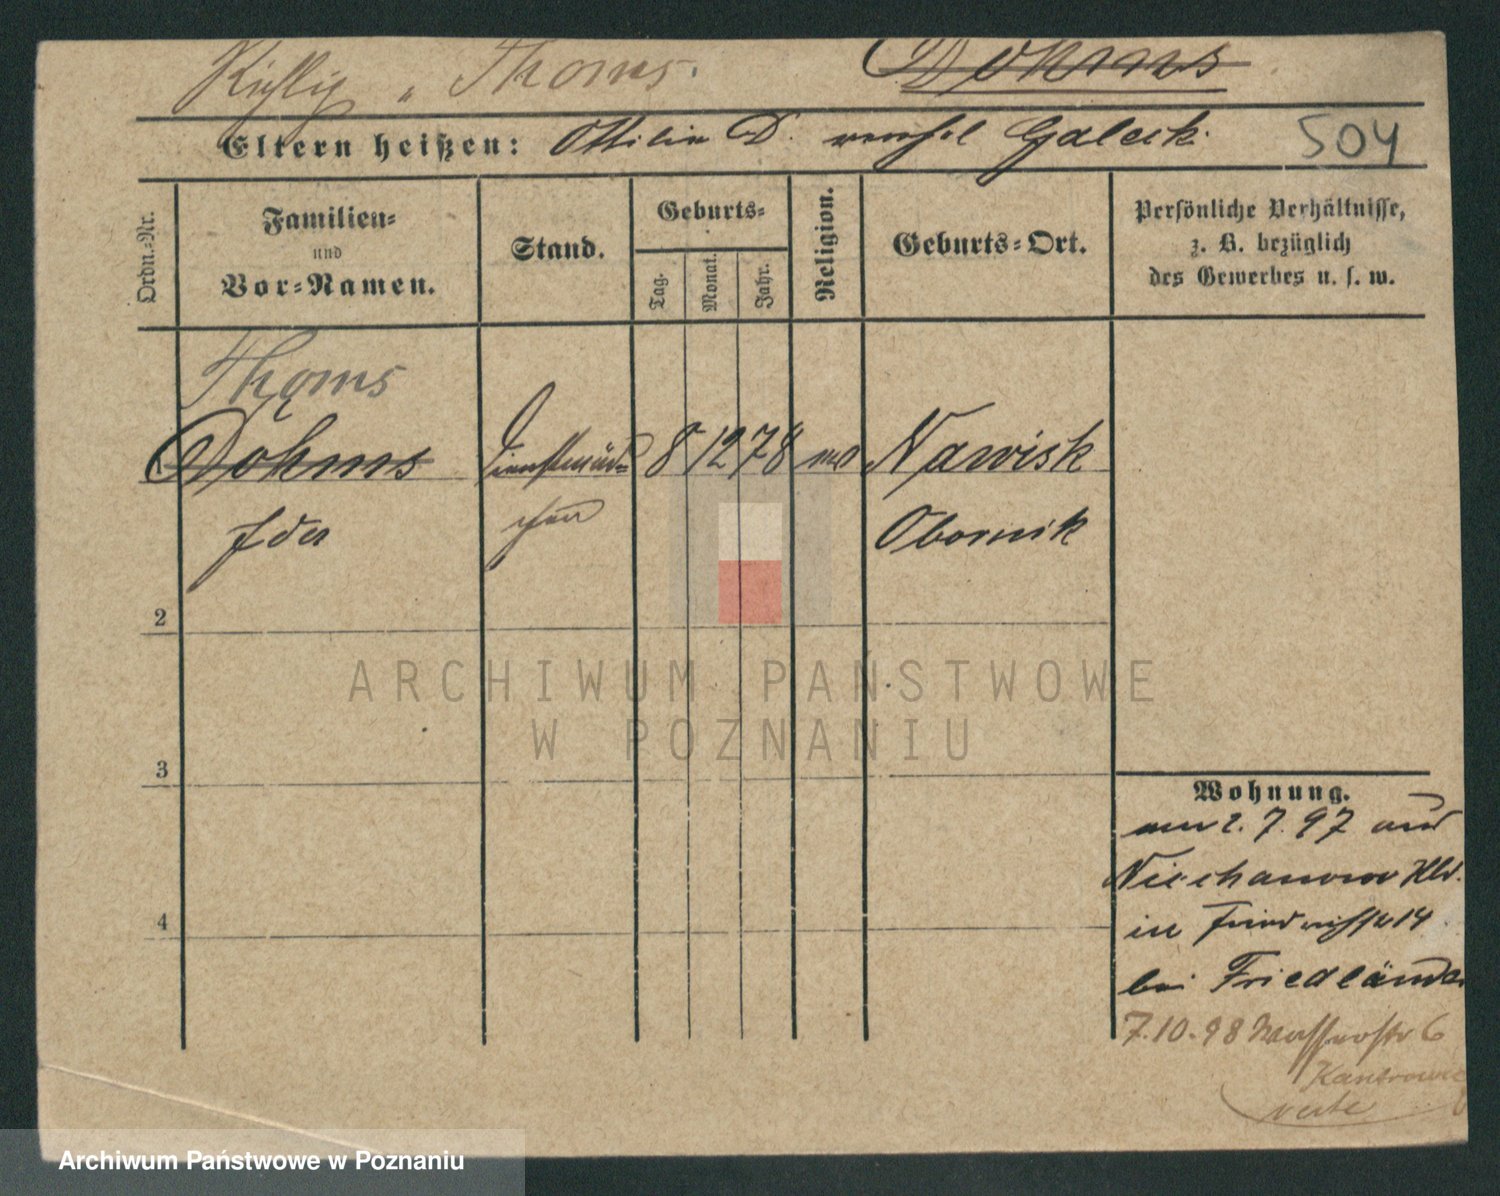 Richtig „ Thoms. Dohms
Eltern heißen: Ottilie D. verehel Galeck. 504
Ordn.-Nr.
Familien-
und
Vor-Namen.
Stand.
Geburts-
Tag.
Monat.
Jahr.
Religion.
Geburts-Ort.
Persönliche Verhältnisse,
z. B. bezüglich
des Gewerbes u. s. w.
Thoms
Dohms Dienstmäd= 8 12 78 Nawisk
Ida chen Obornik
2
3
4
Wohnung.
am 2. 7. 97 aus
Niechanowo Hld.
in Friedrichstr 14
bei Friedländer
7.10.98 Wasserstr 6
verte
ARCHIWUM PAŃSTWOWE
W POZNANIU
Archiwum Państwowe w Poznaniu